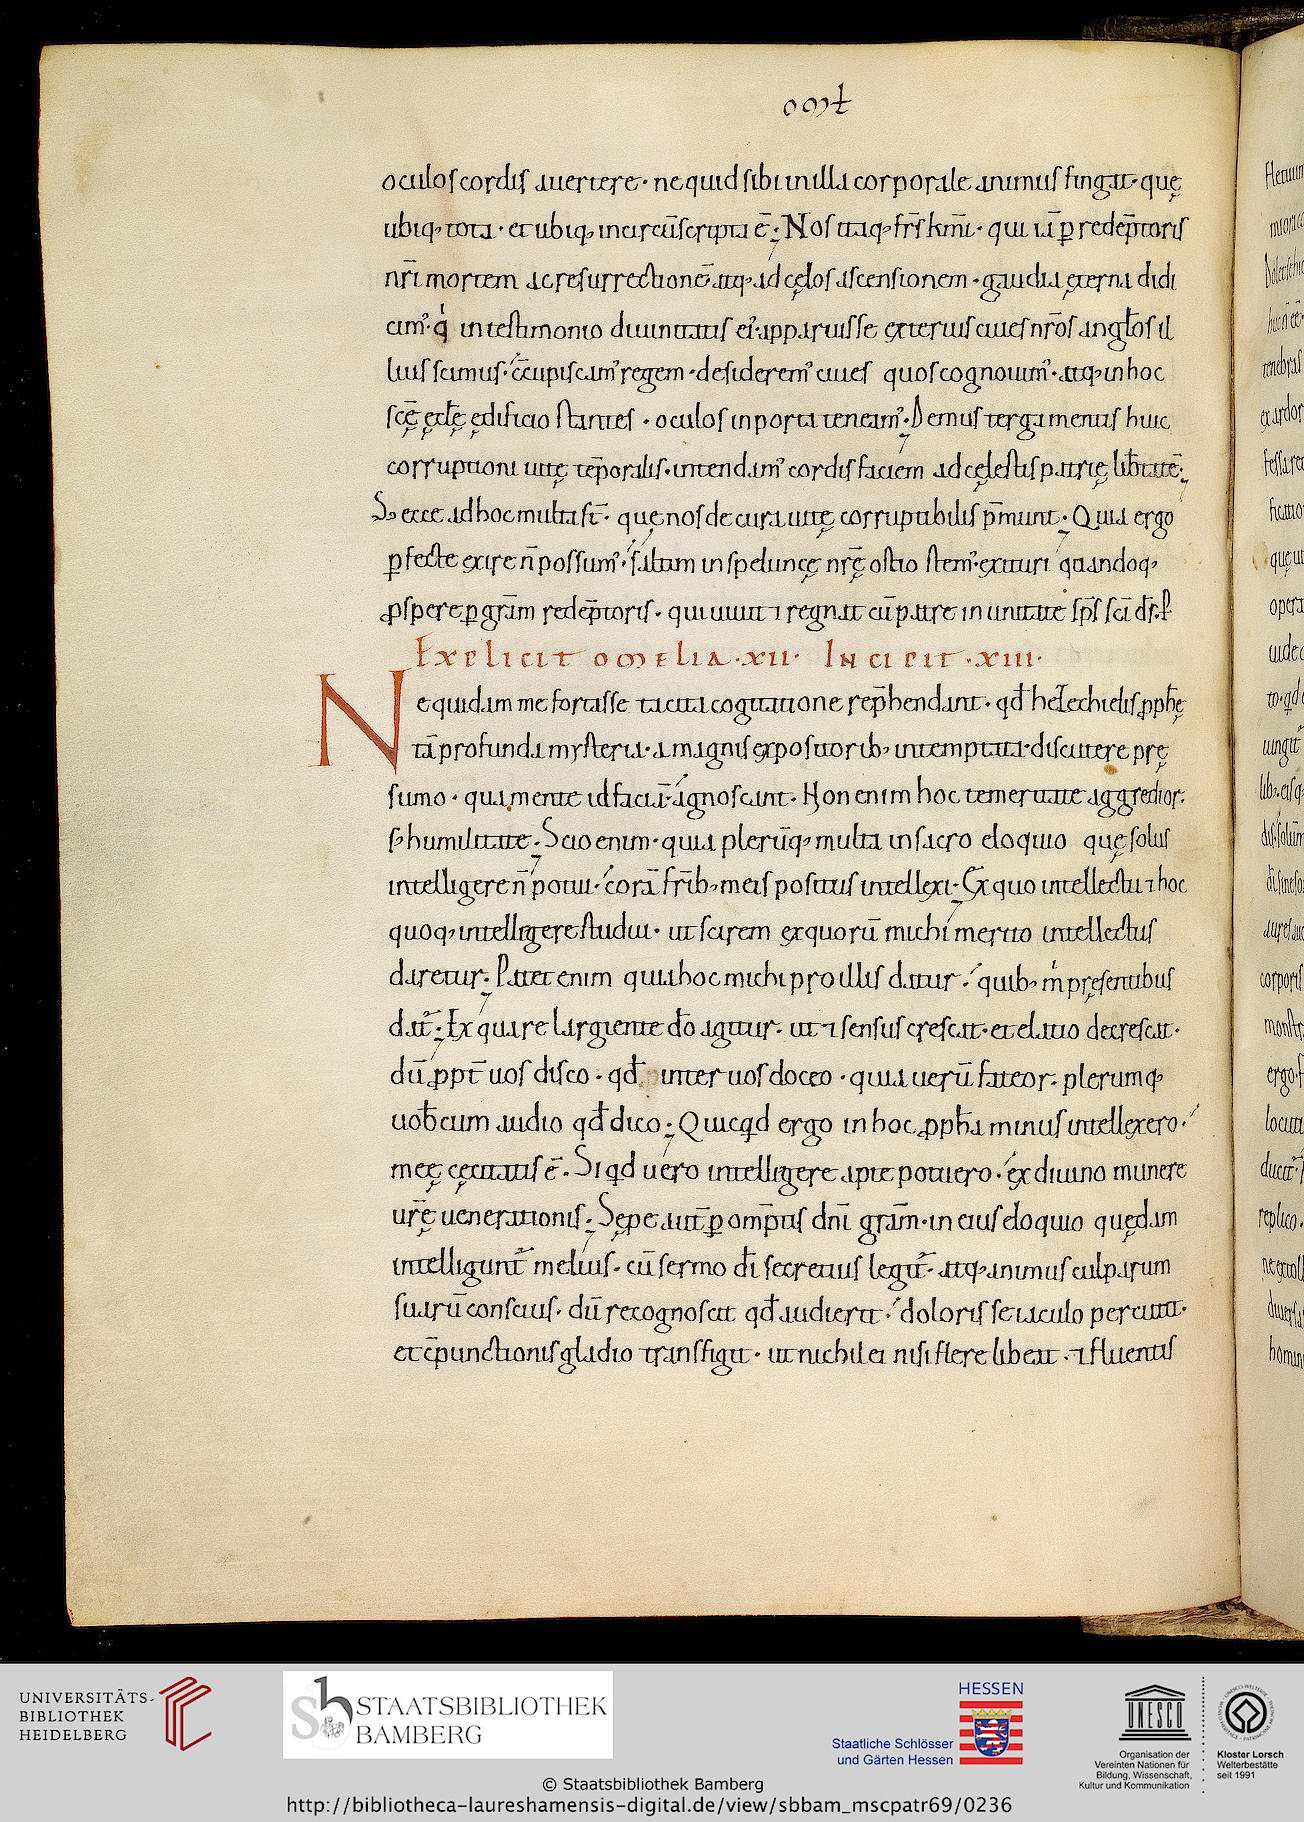 omł
oculos cordis auertere· ne quid sibi in illa corporale animus fingat· quę
ubiq; tota· et ubiq; incircūscripta ē; Nos itaq; fr̄s km̄i· qui iā ꝑ redēptoris
nr̄i mortem ac resurrectionē atq; ad cęlos ascensionem· gaudia ęterna didi
cim᾽· q' in testimonio diuinitatis ei᾽ apparuisse exterius ciues nr̄os angłos il
lius scimus· c̄cupiscam᾽ regem· desiderem᾽ ciues quos cognouim᾽· atq; in hoc
scę̄ ęcłę ędificio stantes· oculos in porta teneam᾽· Demus terga mentis huic
corruptioni uitę tēporalis· intendam᾽ cordis faciem ad cęlestis patrię lib̄tatē;
S; ecce ad hoc multa st̄· quę nos de cura uitę corruptibilis p̄munt· Quia ergo
ꝑfecte exire n̄ possum᾽· saltim in spelunce nrę̄ ostio stem᾽· exituri quandoq;
ꝓspere ꝑ gr̄am redēptoris· qui uiuit ⁊ regnat cū patre in unitate sp̄s sc̄i d̄s· ꝑ
Explicit omelia·xii· Incipit·xiii·
Ne quidam me fortasse tacita cogitatione rep̄hendant· qd̄ hezechielis ꝓph̄ę
tā profunda mysteria· a magnis expositorib; intemptata· discutere prę
sumo· qua mente id faciā· agnoscant· Non enim hoc temeritate aggredior·
s; humilitate· Scio enim· quia plerūq; multa in sacro eloquio quę solus
intelligere n̄ potui· corā fr̄ib; meis positus intellexi· Ex quo intellectu ⁊ hoc
quoq; intelligere studui· ut scirem ex quorū michi merito intellectus
daretur· Patet enim quia hoc michi pro illis datur· quib; m' pręsentibus
dat᾽; Ex qua re largiente d̄o agitur· ut ⁊ sensus crescat· et elatio decrescat·
dū ꝓpt̄ uos disco· qd̄ inter uos doceo· quia uerū fateor· plerumq;
uob̄cum audio qd̄ dico; Quicqd ergo in hoc ꝓph̄a minus intellexero·
meę cęcitatis ē· Si qd uero intelligere apte potuero· ex diuino munere
urę̄ uenerationis; Sępe aut̄ ꝑ omp̄tis dn̄i gr̄am· in eius eloquio quędam
intelligunt᾽ melius· cū sermo d̄i secretius legit᾽· atq; animus culparum
suarū conscius· dū recognoscit qd̄ audierit· doloris se iaculo percutit·
et c̄punctionis gladio transfigit· ut nichil ei nisi flere libeat· ⁊ fluentis
UNIVERSITÄTS-
BIBLIOTHEK
HEIDELBERG
STAATSBIBLIOTHEK
BAMBERG
HESSEN
Staatliche Schlösser
und Gärten Hessen
UNESCO
Organisation der
Vereinten Nationen für
Bildung, Wissenschaft,
Kultur und Kommunikation
Kloster Lorsch
Welterbestätte
seit 1991
© Staatsbibliothek Bamberg
http://bibliotheca-laureshamensis-digital.de/view/sbbam_mscpatr69/0236